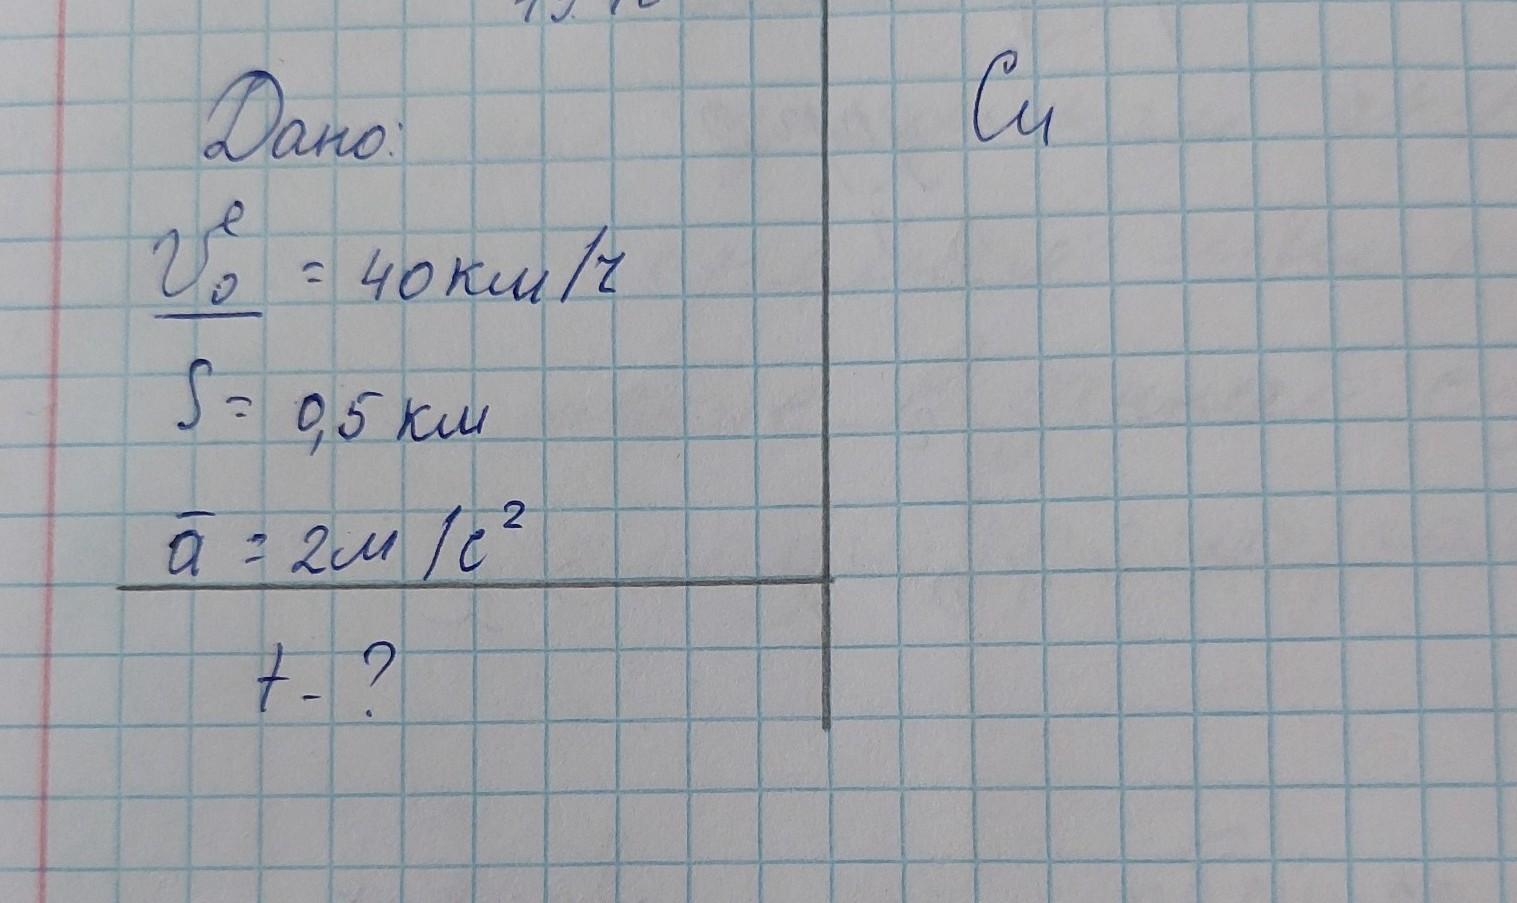 Дано:
Си
V₀ = 40 км/ч
S = 0,5 км
a̅ = 2 м/с²
t - ?